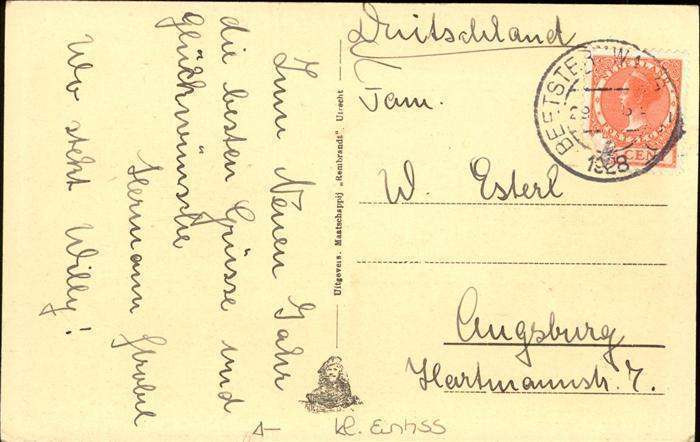 Zum Neuen Jahr
die besten Grüsse und
glückwünsche
Hermann Strobel
Wo steht Willy!
Uitgevers: Maatschappij „Rembrandt” Utrecht
Deutschland
Fam.
W. Esterl
Augsburg
Hartmannstr. 7.
NEDERLAND
POSTZEGEL
CENT
1928
kl. Einriss